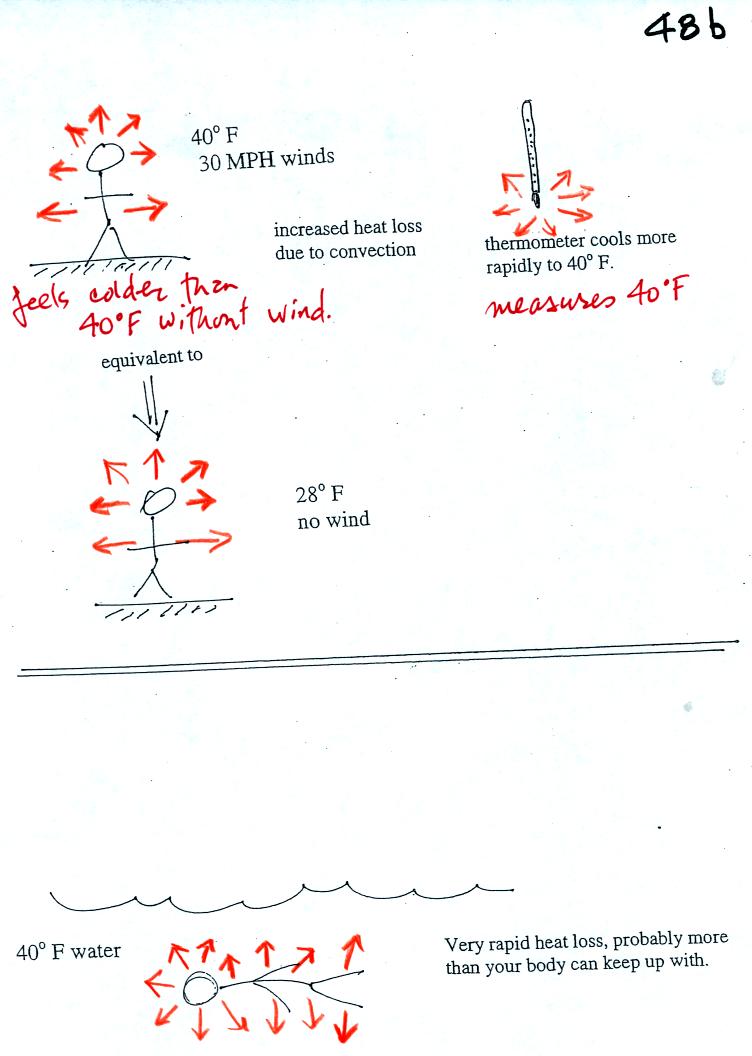 48b
40° F
30 MPH winds
increased heat loss
due to convection
thermometer cools more
rapidly to 40° F.
feels colder than
40°F without wind.
measures 40°F
equivalent to
28° F
no wind
40° F water
Very rapid heat loss, probably more
than your body can keep up with.